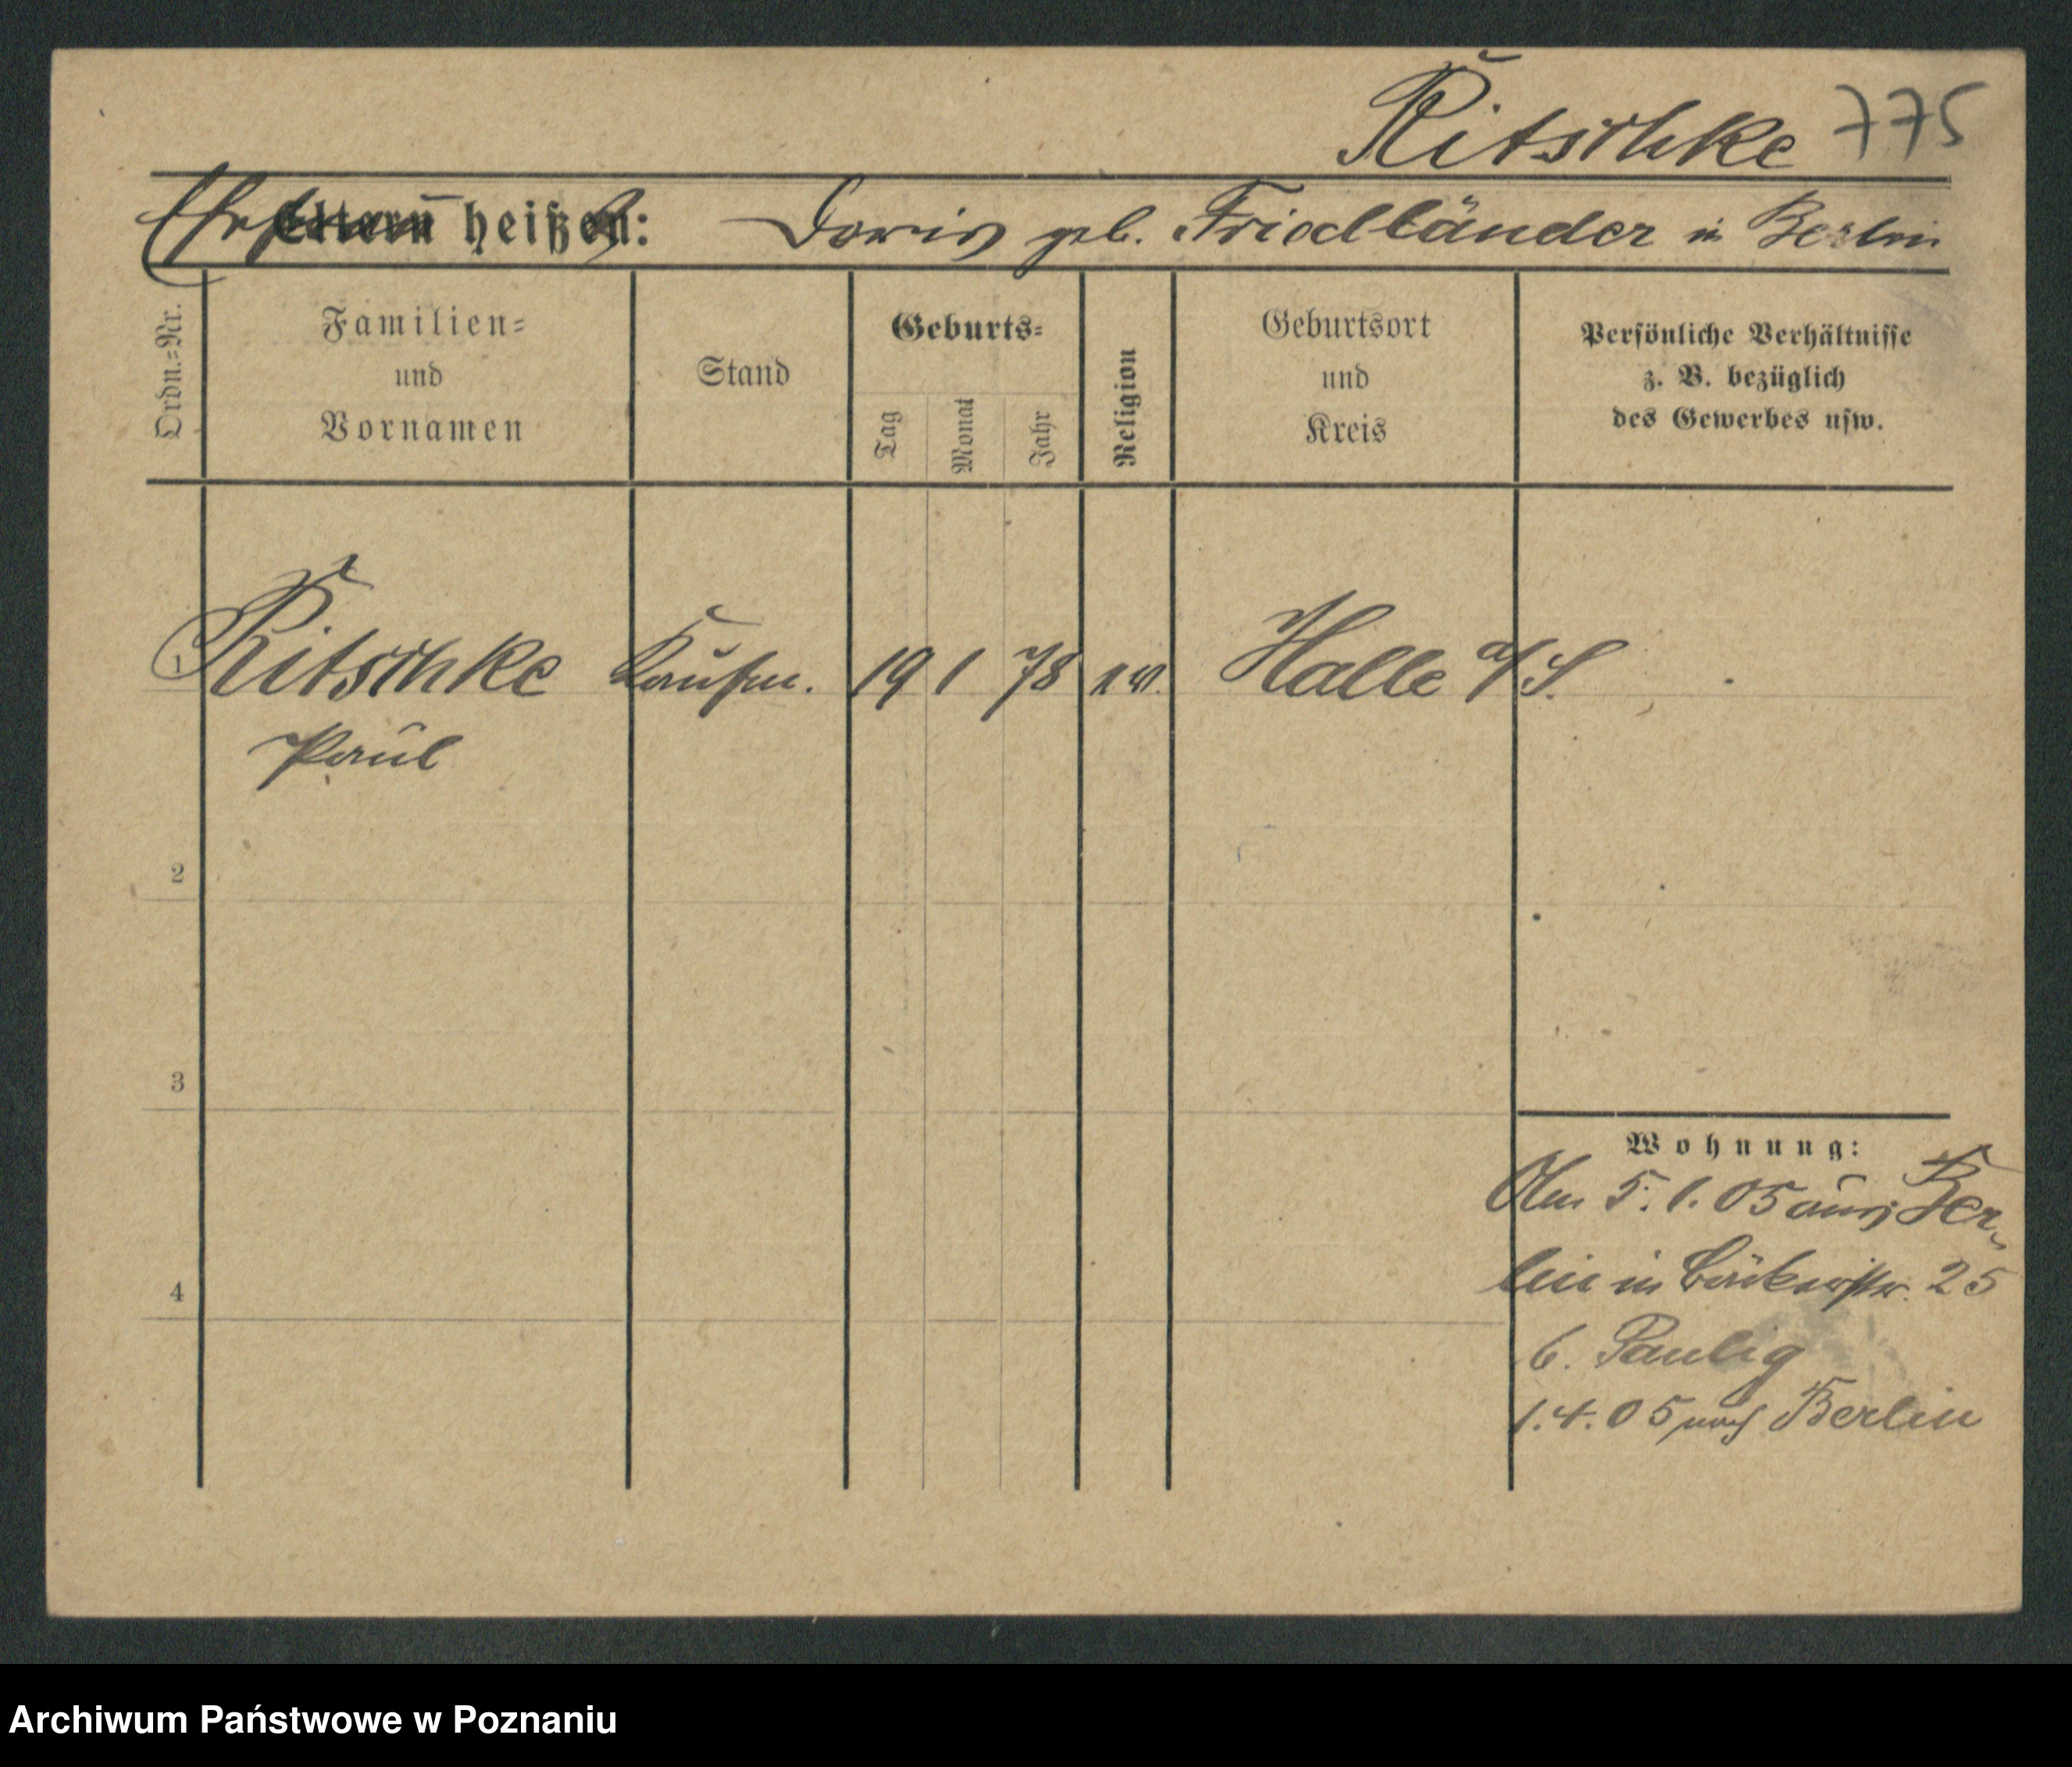 Ritschke 775
Ehefrau
Eltern heißen: Doris geb. Friedländer in Berlin
Ordn.=Nr.
Familien=
und
Vornamen
Stand
Geburts=
Tag
Monat
Jahr
Religion
Geburtsort
und
Kreis
Persönliche Verhältnisse
z. B. bezüglich
des Gewerbes usw.
1 Ritschke Kaufm. 19 1 78 ev. Halle a/S.
Paul
2
3
4
Wohnung:
Am 5.1.05 aus Ber-
lin in Bäckerstr. 25
b. Paulig
1.4.05 nach Berlin
Archiwum Państwowe w Poznaniu